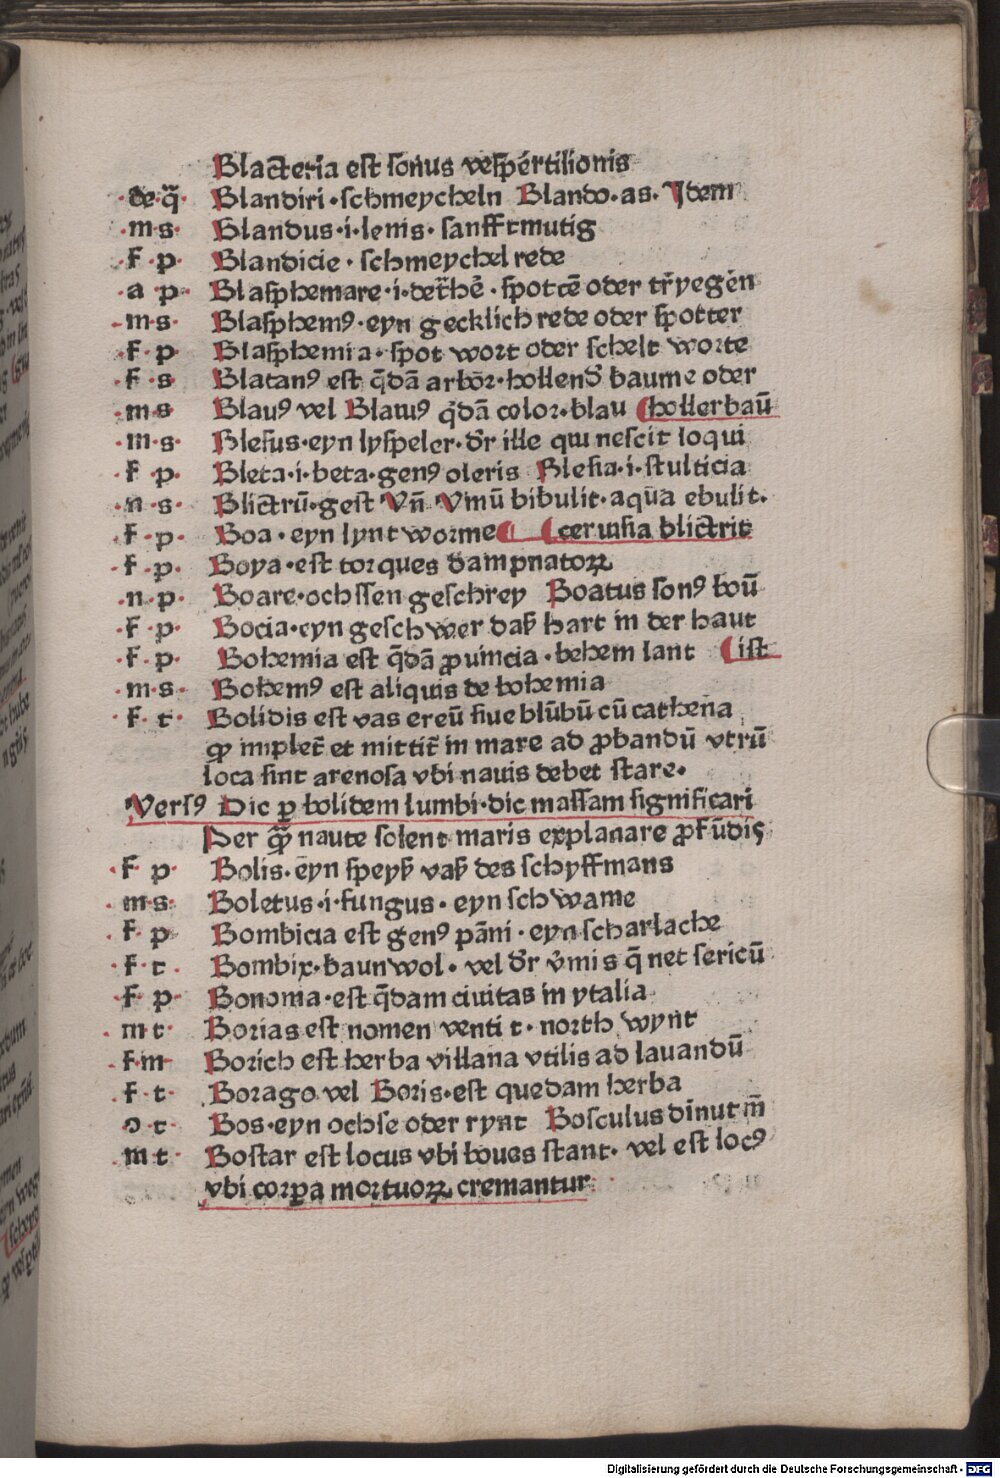 Blacteria est sonus vespertilionis
·de·q̃· Blandiri·schmeycheln Blando·as· Jdem
·m·s· Blandus·i·lenis·sanfftmutig
·f·p· Blandicie·schmeychel rede
·a·p· Blasphemare·i·det̃hẽ·spottẽ oder tr̃yegen
·m·s· Blasphemꝰ·eyn gecklich rede oder spotter
·f·p· Blasphemia·spot wort oder schelt worte
·f·s· Blatanꝰ est q̃dã arbor·hollend̾ baume oder
·m·s· Blauꝰ vel Blatuꝰ q̃dã color·blau hollerbaũ
·m·s· Blesus·eyn lyspeler·d̾r ille qui nescit loqui
·f·p· Bleta·i·beta·genꝰ oleris Blesia·i·stulticia
·n·s· Blictrũ·gest Vñ Vinũ bibulit·aqua ebulit·
·f·p· Boa·eyn lynt worme ceruisia blictrit
·f·p· Boya·est torques dampnatoꝝ
·n·p· Boare·ochssen geschrey Boatus sonꝰ boũ
·f·p· Bocia·eyn geschwer daß hart in der haut
·f·p· Bohemia est q̃dã ꝓuincia·behem lant ist
·m·s· Bohemꝰ est aliquis de bohemia
·f·t· Bolidis est vas ereũ siue blũbũ cũ cathena
ꝙ implet̃ et mittit̃ in mare ad ꝓbandũ vtrũ
loca sint arenosa vbi nauis debet stare·
Versꝰ Dic ꝑ bolidem lumbi·dic massam significari
Per quã naute solent maris explanare ꝓfũdis
·f·p· Bolis·eyn speyß vaß des schyffmans
·m·s· Boletus·i·fungus·eyn schwame
·f·p· Bombicia est genꝰ pãni·eyn scharlache
·f·t· Bombix·baunwol·vel d̾r v̾mis q̃ net sericũ
·f·p· Bonoma·est q̃dam ciuitas in ytalia
m t· Borias est nomen venti t·north wynt
·f·m· Borich est herba villana vtilis ad lauandũ
·f·t· Borago vel Boris·est quedam herba
·o·t· Bos·eyn ochse oder rynt Bosculus dinutm̃
·m t· Bostar est locus vbi boues stant·vel est locꝰ
vbi corpa mortuoꝝ cremantur
Digitalisierung gefördert durch die Deutsche Forschungsgemeinschaft - DFG